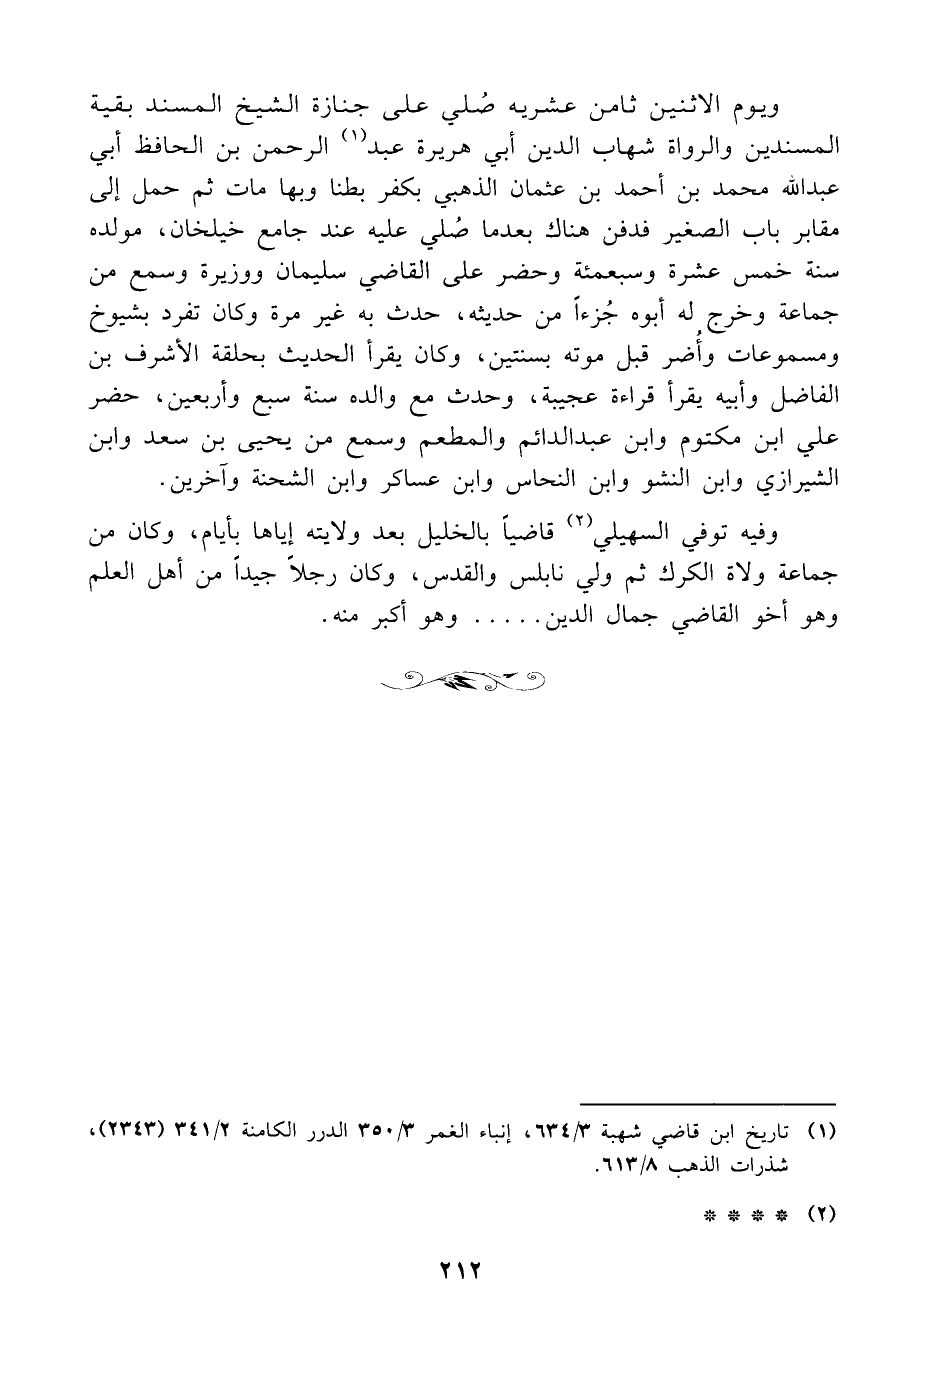 ويوم الاثنين ثامن عشريه صُلي على جنازة الشيخ المسند بقية
المسندين والرواة شهاب الدين أبي هريرة عبد(١) الرحمن بن الحافظ أبي
عبدالله محمد بن أحمد بن عثمان الذهبي بكفر بطنا وبها مات ثم حمل إلى
مقابر باب الصغير فدفن هناك بعدما صُلي عليه عند جامع خيلخان، مولده
سنة خمس عشرة وسبعمئة وحضر على القاضي سليمان ووزيرة وسمع من
جماعة وخرج له أبوه جُزءاً من حديثه، حدث به غير مرة وكان تفرد بشيوخ
ومسموعات وأُضر قبل موته بسنتين، وكان يقرأ الحديث بحلقة الأشرف بن
الفاضل وأبيه يقرأ قراءة عجيبة، وحدث مع والده سنة سبع وأربعين، حضر
علي ابن مكتوم وابن عبدالدائم والمطعم وسمع من يحيى بن سعد وابن
الشيرازي وابن النشو وابن النحاس وابن عساكر وابن الشحنة وآخرين.
وفيه توفي السهيلي(٢) قاضياً بالخليل بعد ولايته إياها بأيام، وكان من
جماعة ولاة الكرك ثم ولي نابلس والقدس، وكان رجلاً جيداً من أهل العلم
وهو أخو القاضي جمال الدين..... وهو أكبر منه.
(١) تاريخ ابن قاضي شهبة ٦٣٤/٣، إنباء الغمر ٣٥٠/٣ الدرر الكامنة ٣٤١/٢ (٢٣٤٣)،
شذرات الذهب ٦١٣/٨.
(٢) * * * *
٢١٢